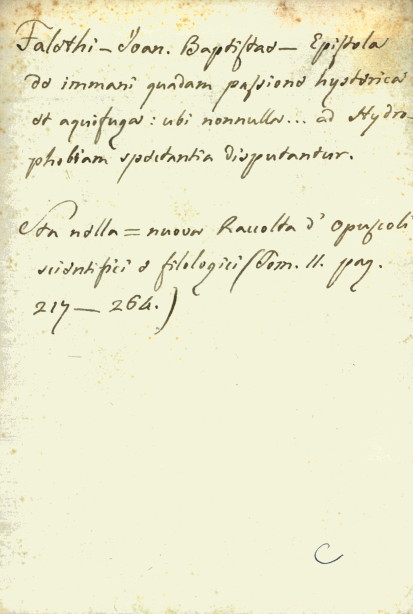 Falethi - Ioan. Baptistae - Epistola
de immani quadam passione hysterica
et aquifuga: ubi nonnulla... ad Hydro-
phobiam spectantia disputantur.
Sta nella = nuova Raccolta d' Opuscoli
scientifici e filologici (Tom. II. pag.
217 — 264.)
C